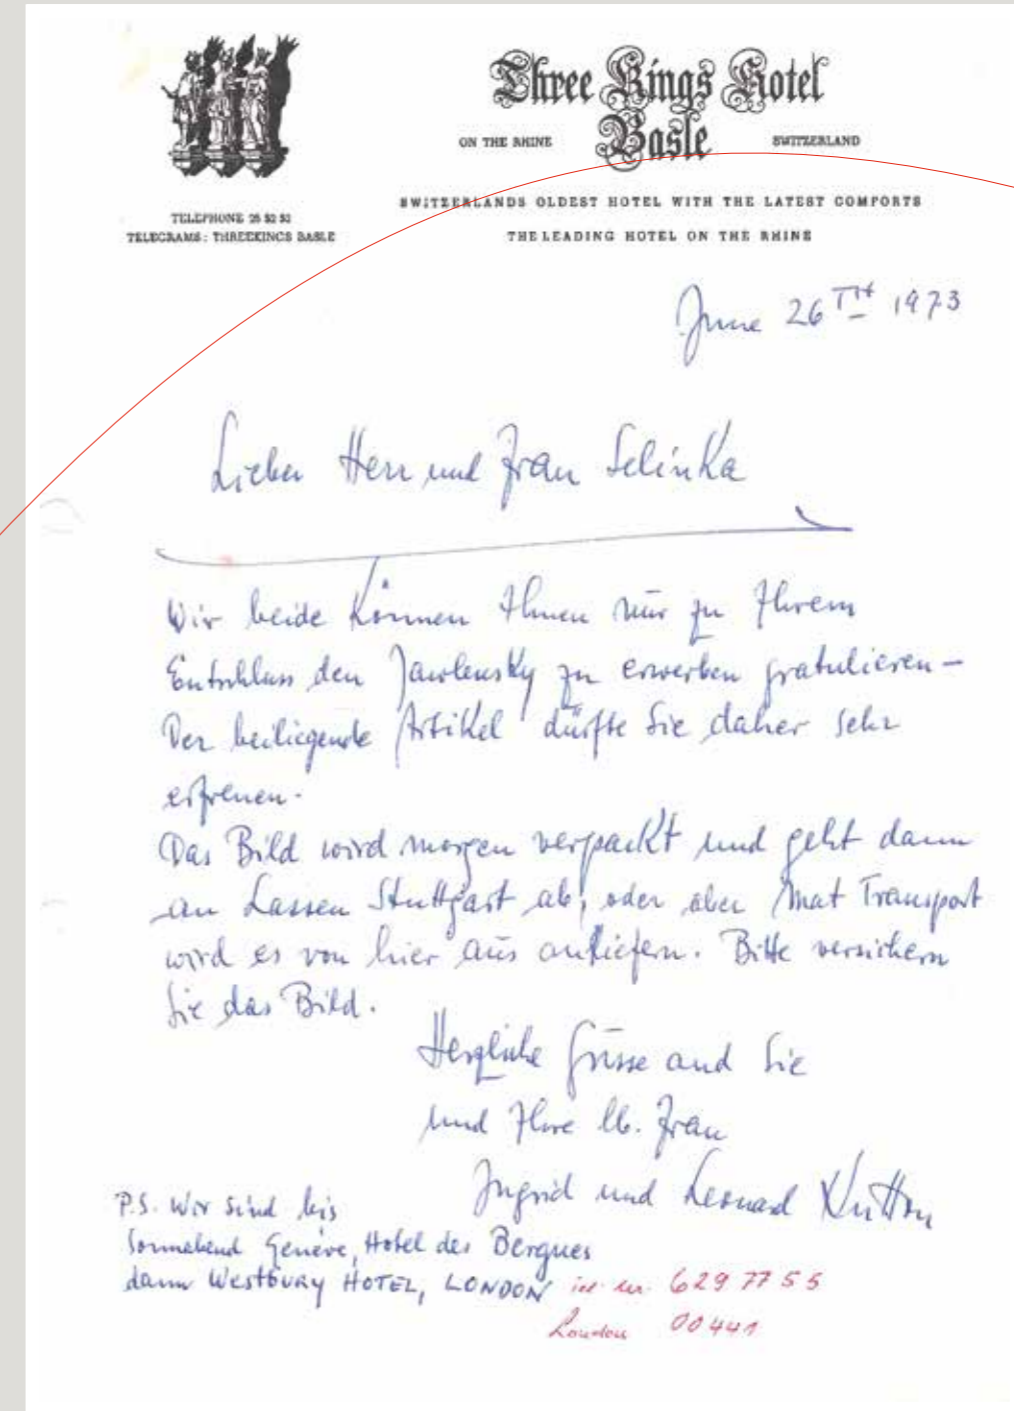 Three Kings Hotel
Basle
ON THE RHINE
SWITZERLAND
SWITZERLANDS OLDEST HOTEL WITH THE LATEST COMFORTS
THE LEADING HOTEL ON THE RHINE
TELEPHONE 25 52 52
TELEGRAMS: THREEKINGS BASLE
June 26TH 1973
Lieber Herr und Frau Selinka
Wir beide Können Ihnen nur zu Ihrem
Entschluss den Jawlensky zu erwerben gratulieren –
Der beiliegende Artikel dürfte Sie daher sehr
erfreuen.
Das Bild wird morgen verpackt und geht dann
an Lassen Stuttgart ab, oder aber Mat Transport
wird es von hier aus anliefern. Bitte versichern
Sie das Bild.
Herzliche Grüsse and Sie
und Ihre lb. Frau
Ingrid und Leonard Hutton
P.S. Wir sind bis
Sonnabend Genève, Hotel des Bergues
dann Westbury HOTEL, LONDON 629 77 55
London 00441